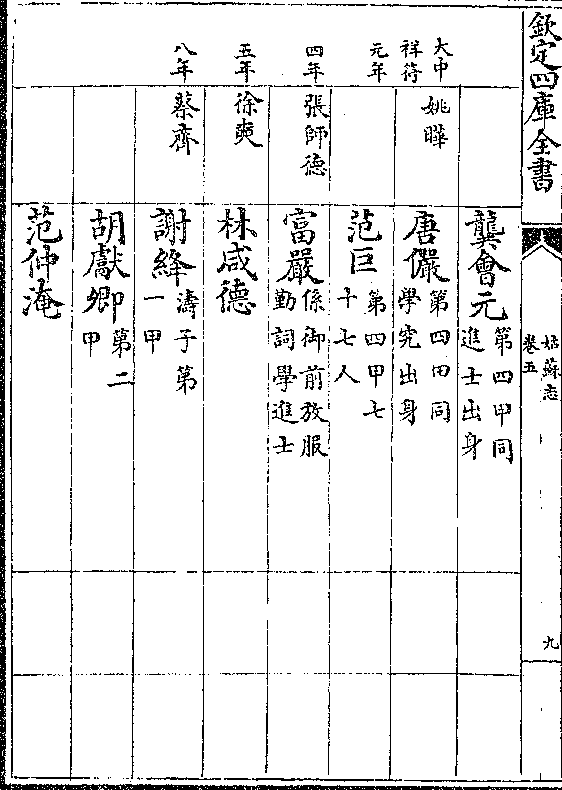 欽定四庫全書
姑蘇志
卷五
九
龔會元
第四甲同
進士出身
大中
祥符
元年
姚曄
唐儼
第四甲同
學究出身
范巨
第四甲七
十七人
四年
張師德
富嚴
係御前放服
勤詞學進士
五年
徐奭
林咸德
八年
蔡齊
謝絳
濤子第
一甲
胡獻卿
第二
甲
范仲淹